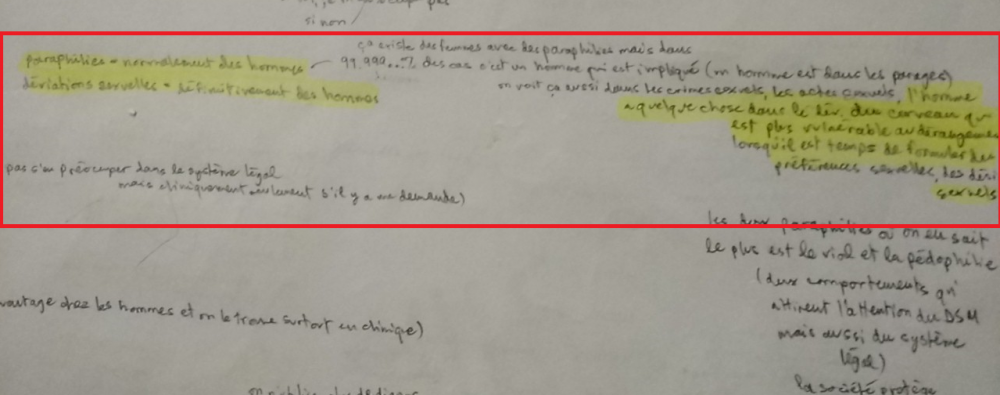 si non
ça existe des femmes avec des paraphilies mais dans
paraphilies = normalement des hommes — 99,990..% des cas c'est un homme qui est impliqué (un homme est dans les parages)
déviations sexuelles = définitivement des hommes
on voit ça aussi dans les crimes sexuels, les actes sexuels, l'homme
a quelque chose dans le dév. du cerveau qu
est plus vulnérable au dérangeme
lorsqu'il est temps de formuler des
préférences sexuelles, des dési
sexuels
pas s'en préoccuper dans le système légal
mais cliniquement seulement s'il y a une demande)
les deux paraphilies où on en sait
le plus est le viol et la pédophilie
(deux comportements qu'
attirent l'attention du DSM
mais aussi du système
légal)
la société protège
vantage chez les hommes et on le trouve surtout en clinique)